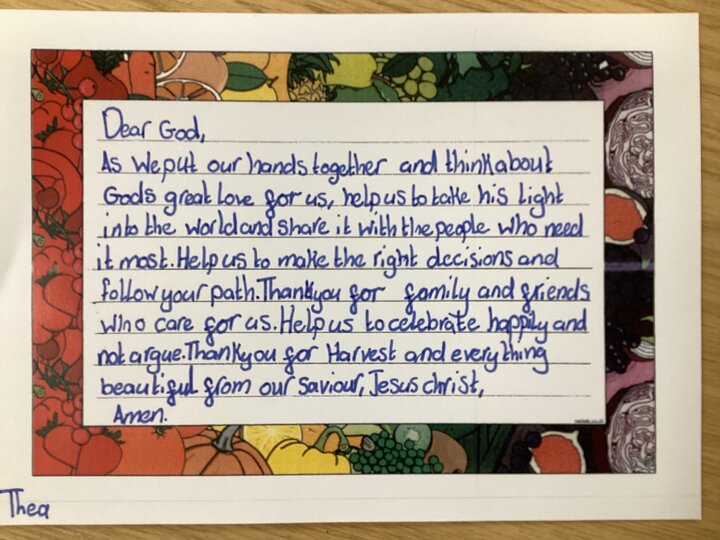 Dear God,
As we put our hands together and think about
Gods great love for us, help us to take his light
into the world and share it with the people who need
it most. Help us to make the right decisions and
follow your path. Thankyou for family and friends
who care for us. Help us to celebrate happily and
not argue. Thankyou for Harvest and everything
beautiful from our saviour, Jesus christ,
Amen.
Thea